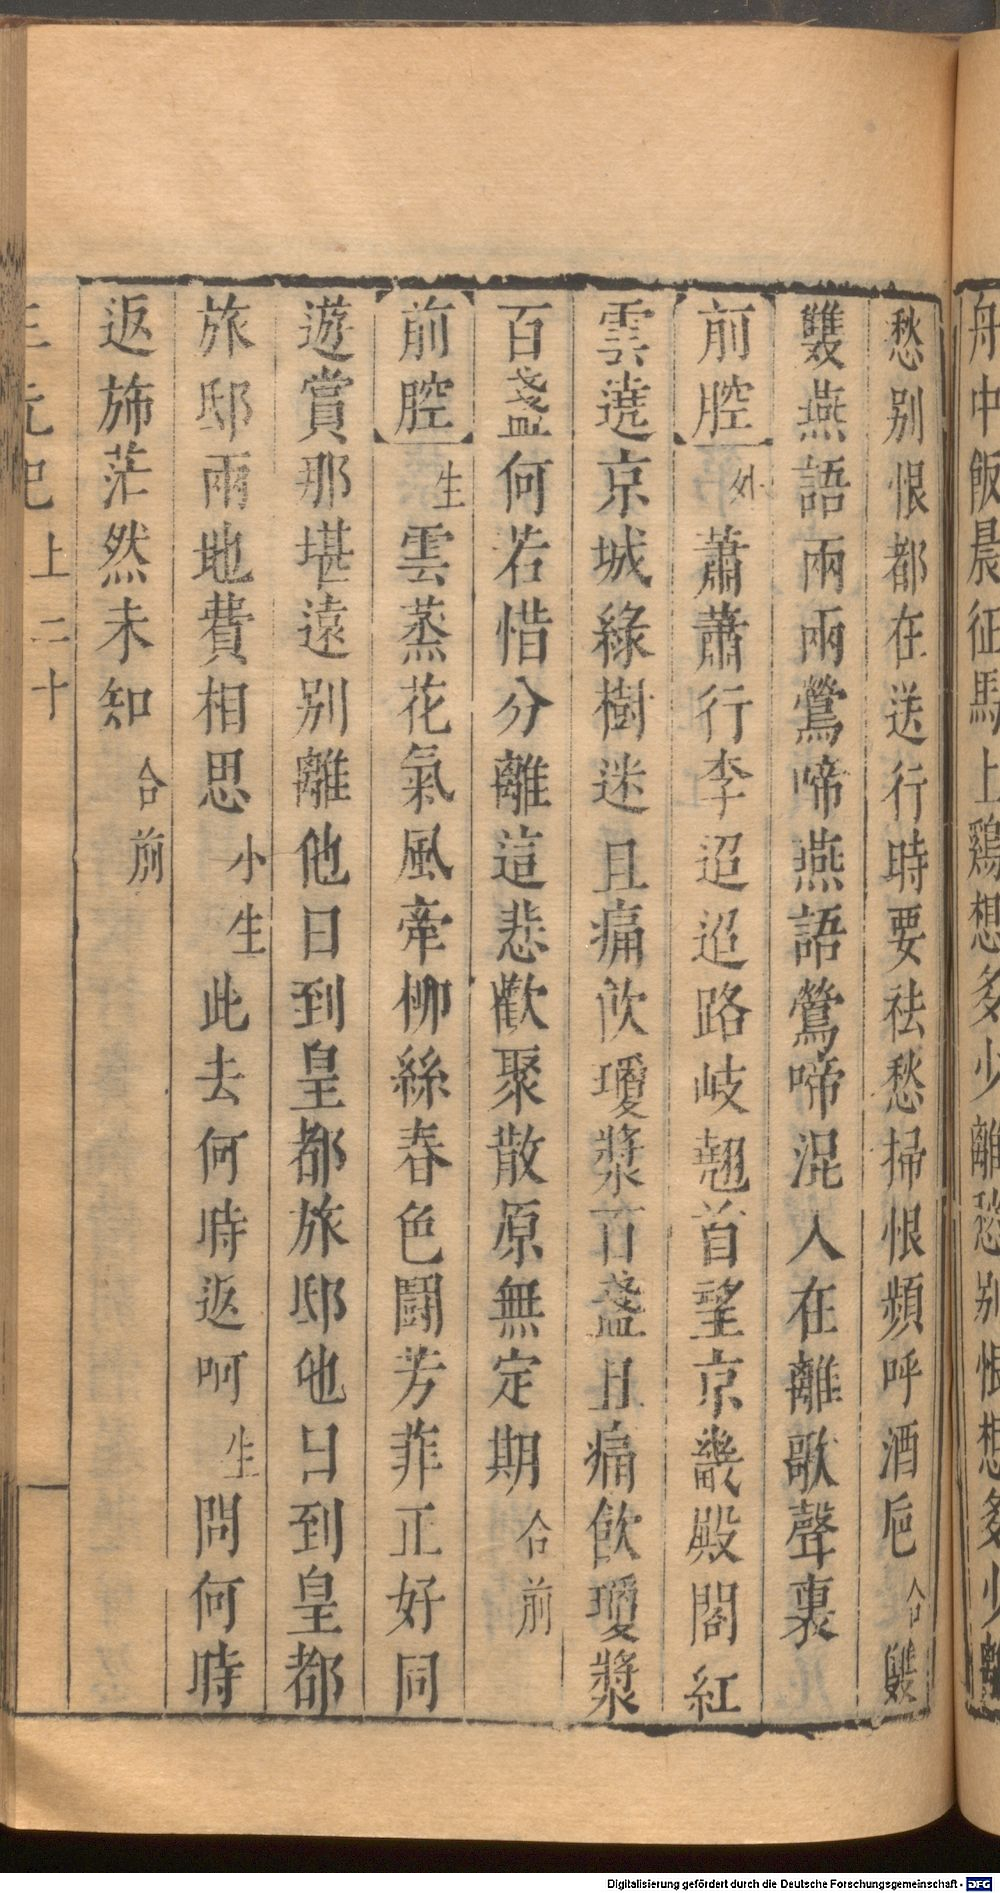 舟中飯晨征馬上鷄想多少離愁別恨想多少離
愁別恨都在送行時要祛愁掃恨頻呼酒卮合雙
雙燕語兩兩鶯啼燕語鶯啼混人在離歌聲裏
前腔外蕭蕭行李迢迢路岐翹首望京畿殿閣紅
雲遶京城綠樹迷且痛飲瓊漿百盞且痛飲瓊漿
百盞何若惜分離這悲歡聚散原無定期合前
前腔生雲蒸花氣風牽柳絲春色鬪芳菲正好同
遊賞那堪遠别離他日到皇都旅邸他日到皇都
旅邸兩地費相思小生此去何時返呵生問何時
返斾茫然未知合前
三元記上二十
Digitalisierung gefördert durch die Deutsche Forschungsgemeinschaft - DFG